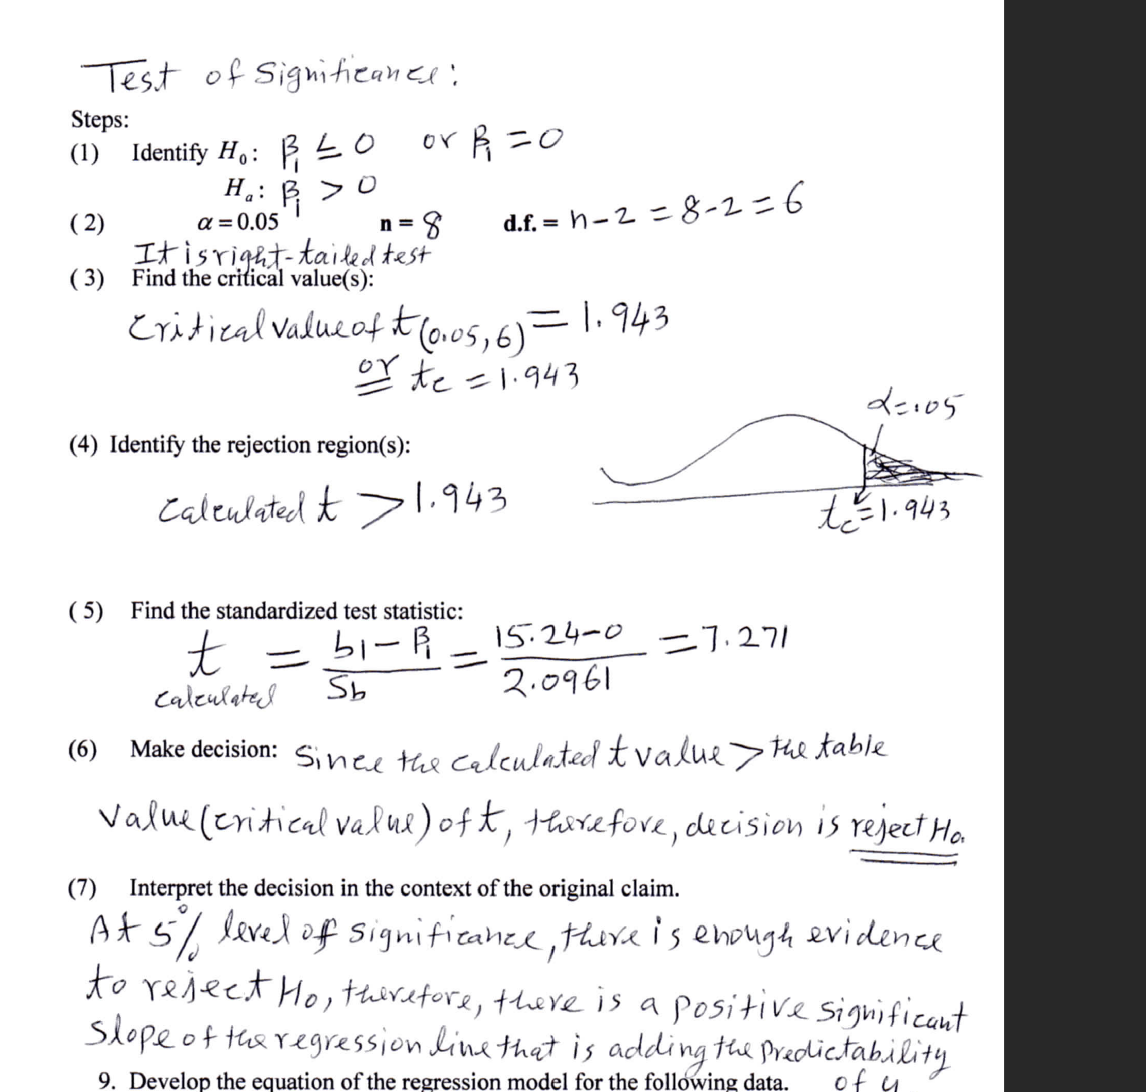 Test of Significance:
Steps:
(1) Identify H₀: β₁ ≤ 0 or β₁ = 0
Hₐ: β₁ > 0
(2) α = 0.05 n = 8 d.f. = n-2 = 8-2 = 6
It is right-tailed test
(3) Find the critical value(s):
Critical value of t(0.05, 6) = 1.943
or tc = 1.943
α=.05
(4) Identify the rejection region(s):
Calculated t > 1.943
tc=1.943
(5) Find the standardized test statistic:
t calculated = b1-β₁ / Sb = 15.24-0 / 2.0961 = 7.271
(6) Make decision: Since the calculated t value > the table
value (critical value) of t, therefore, decision is reject Ho.
(7) Interpret the decision in the context of the original claim.
At 5% level of significance, there is enough evidence
to reject Ho, therefore, there is a positive significant
slope of the regression line that is adding the predictability
of y
9. Develop the equation of the regression model for the following data.